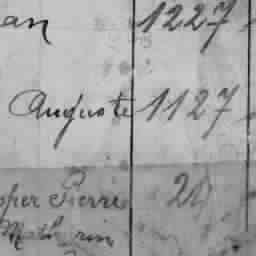 an 1227
Auguste 1127
per Pierre 20
Math rin